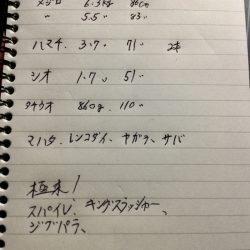 メジロ 6.3kg 86cm
〃 5.5〃 83〃
ハマチ. 3.7〃 71〃 2本
シオ 1.7〃 51〃
タチウオ 860g. 110〃
マハタ. レンコダイ. ヤガラ. サバ
極末!
スパイV. キングスラッシャー.
ジグパラ.